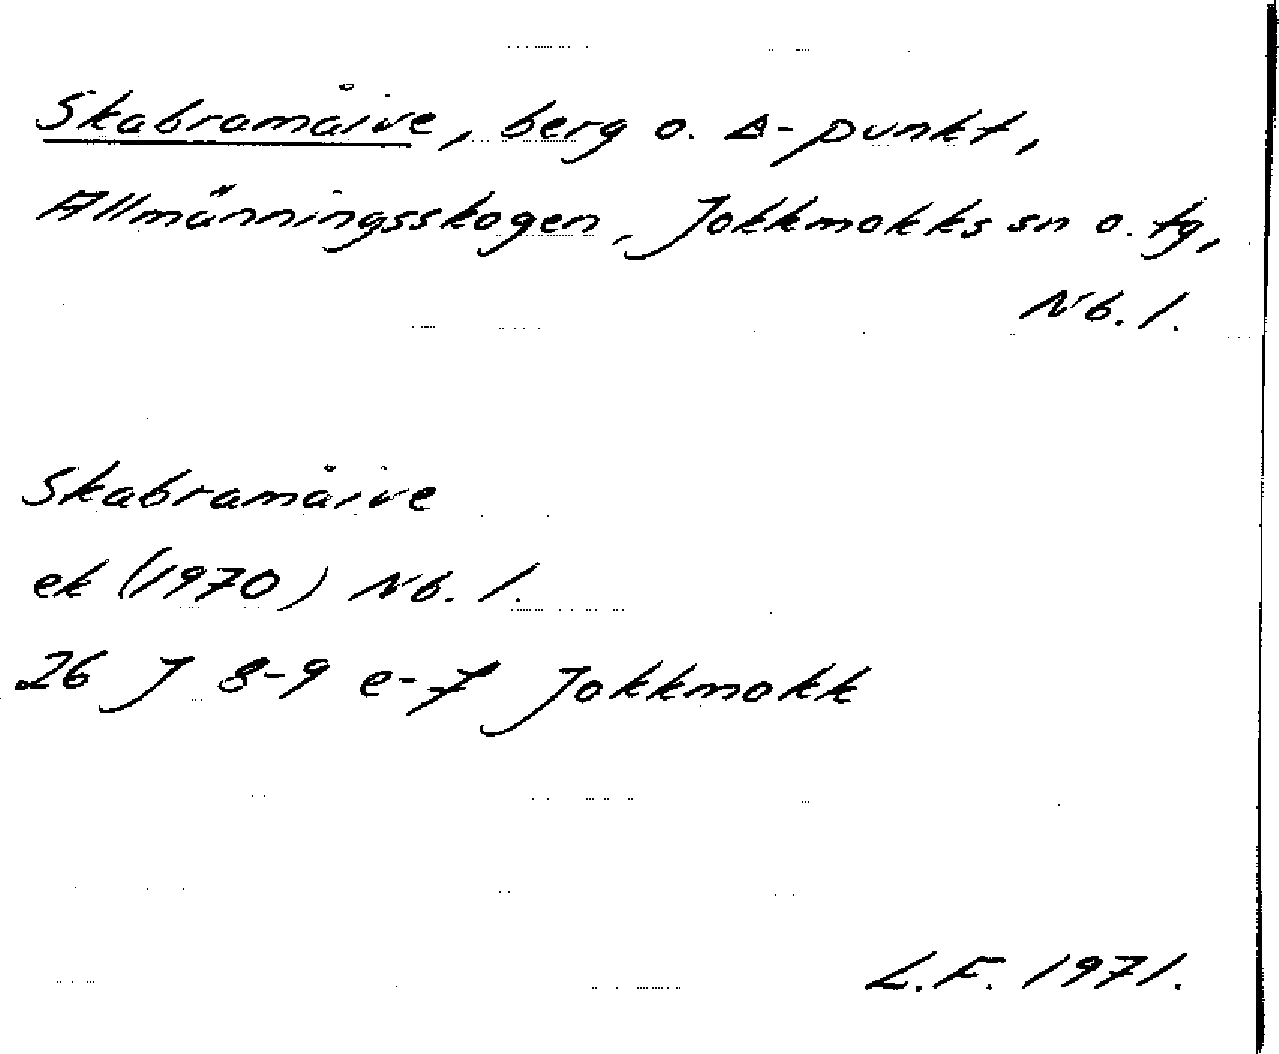 Skabramåive, berg o. Δ-punkt,
Allmänningsskogen, Jokkmokks sn o. tg,
Nb. l.
Skabramåive
ek (1970) Nb. l.
26 J 8-9 e-f Jokkmokk
L.F. 1971.